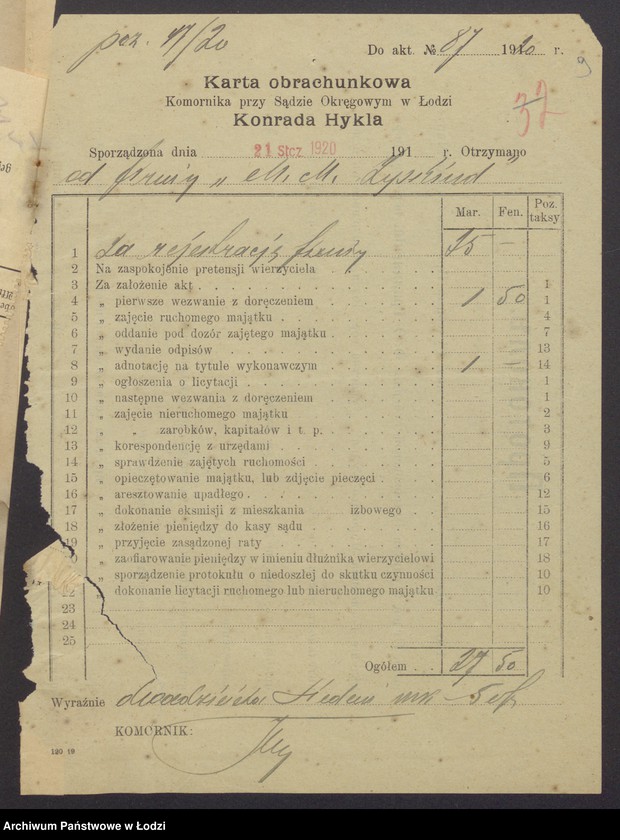 poz. 11/20
Do akt. № 87 1920 r.
9
Karta obrachunkowa
Komornika przy Sądzie Okręgowym w Łodzi
Konrada Hykla
37
Sporządzona dnia 21 Stcz 1920 191 r. Otrzymano
od firmy „M. M. Zyskind"
Mar. Fen. Poz. taksy
1 Za rejestrację firmy 25 —
2 Na zaspokojenie pretensji wierzyciela
3 Za założenie akt 1
4 „ pierwsze wezwanie z doręczeniem 1 50 1
5 „ zajęcie ruchomego majątku 4
6 „ oddanie pod dozór zajętego majątku 7
7 „ wydanie odpisów 13
8 „ adnotację na tytule wykonawczym 1 — 14
9 „ ogłoszenia o licytacji 1
10 „ następne wezwania z doręczeniem 1
11 „ zajęcie nieruchomego majątku 2
12 „ „ zarobków, kapitałów i t. p. 3
13 „ korespondencję z urzędami 9
14 „ sprawdzenie zajętych ruchomości 5
15 „ opieczętowanie majątku, lub zdjęcie pieczęci 6
16 „ aresztowanie upadłego 12
17 „ dokonanie eksmisji z mieszkania izbowego 15
18 „ złożenie pieniędzy do kasy sądu 16
19 „ przyjęcie zasądzonej raty 17
„ zaofiarowanie pieniędzy w imieniu dłużnika wierzycielowi 18
„ sporządzenie protokułu o niedoszłej do skutku czynności 10
dokonanie licytacji ruchomego lub nieruchomego majątku 10
23
24
25
Ogółem 27 50
Wyraźnie dwadzieścia siedem mk 50 f
KOMORNIK:
120 19
Archiwum Państwowe w Łodzi